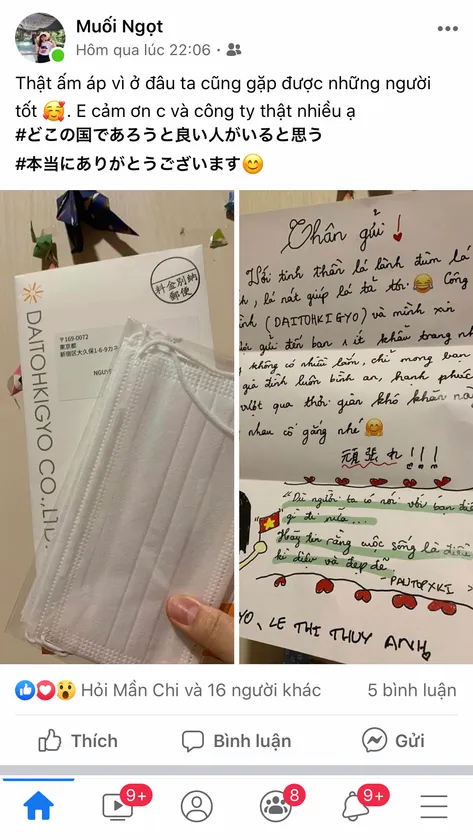 Muối Ngọt
Hôm qua lúc 22:06
Thật ấm áp vì ở đâu ta cũng gặp được những người
tốt 🥰. E cảm ơn c và công ty thật nhiều ạ
#どこの国であろうと良い人がいると思う
#本当にありがとうございます😊
料金別納
郵便
〒169-0072
東京都
新宿区大久保1-6-9カ
NGUY
DAITOHKIGYO CO.,LTD.
Thân gửi
Với tinh thần lá lành đùm lá
h, lá nát giúp lá tả tơi. 😂 Công
ình (DAITOHKIGYO) và mình xin
gửi đến bạn 1 ít khẩu trang
không có nhiều lắm, chỉ mong bạn
gia đình luôn bình an, hạnh phúc
vượt qua thời gian khó khăn
nhau cố gắng nhé! 🤗
頑張れ!!!
"Dù người ta có nói với bạn
gì đi nữa...
Hãy tin rằng cuộc sống là điều
kì diệu và đẹp đẽ.
- PAUTOPXKI
YO, LE THI THUY ANH
Hỏi Mần Chi và 16 người khác
5 bình luận
Thích
Bình luận
Gửi
9+
8
9+